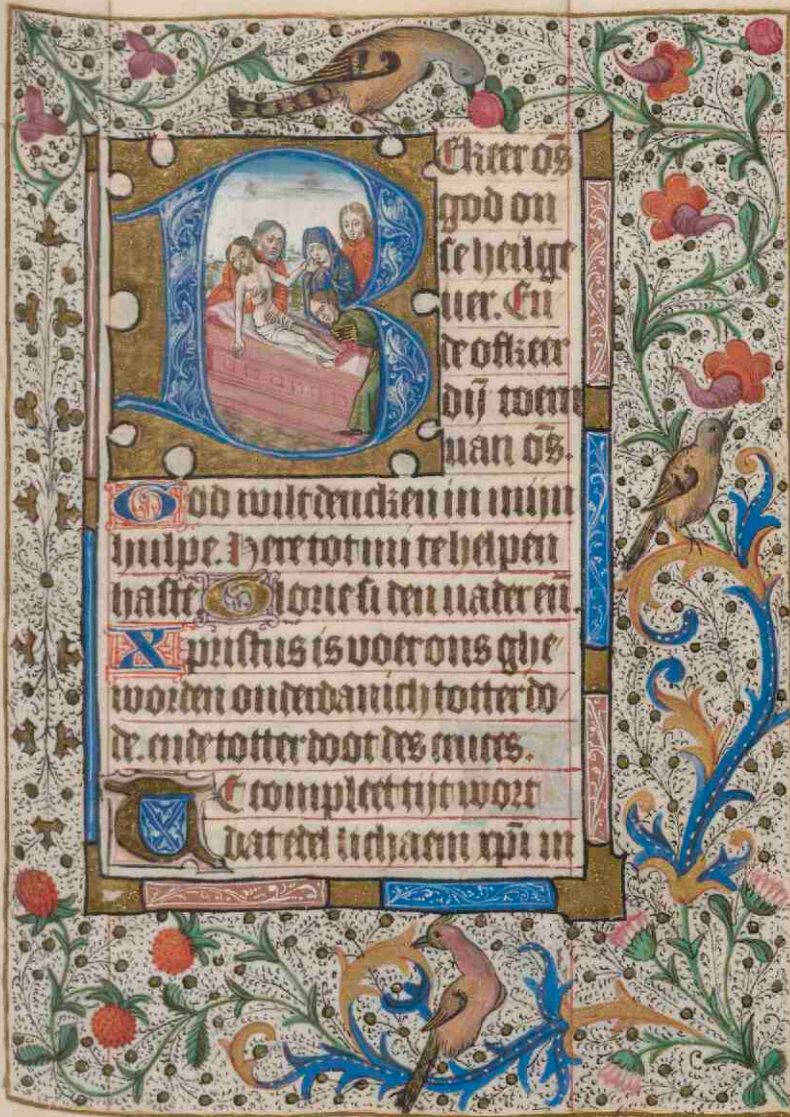 BEkeer o̅s
god on
se heilge
uer. En̄
de ofkeer
dy̅ toern
uan o̅s.
God wilt dencken in mijn
hulpe. Here tot mi te helpen
haste Glorie si den uader en̄.
Xpristus is voer ons ghe
worden onderdanich totter do
de. ende totter doot des cruces.
Te compleet tijt wort
dat edel lichaem xp̄i in